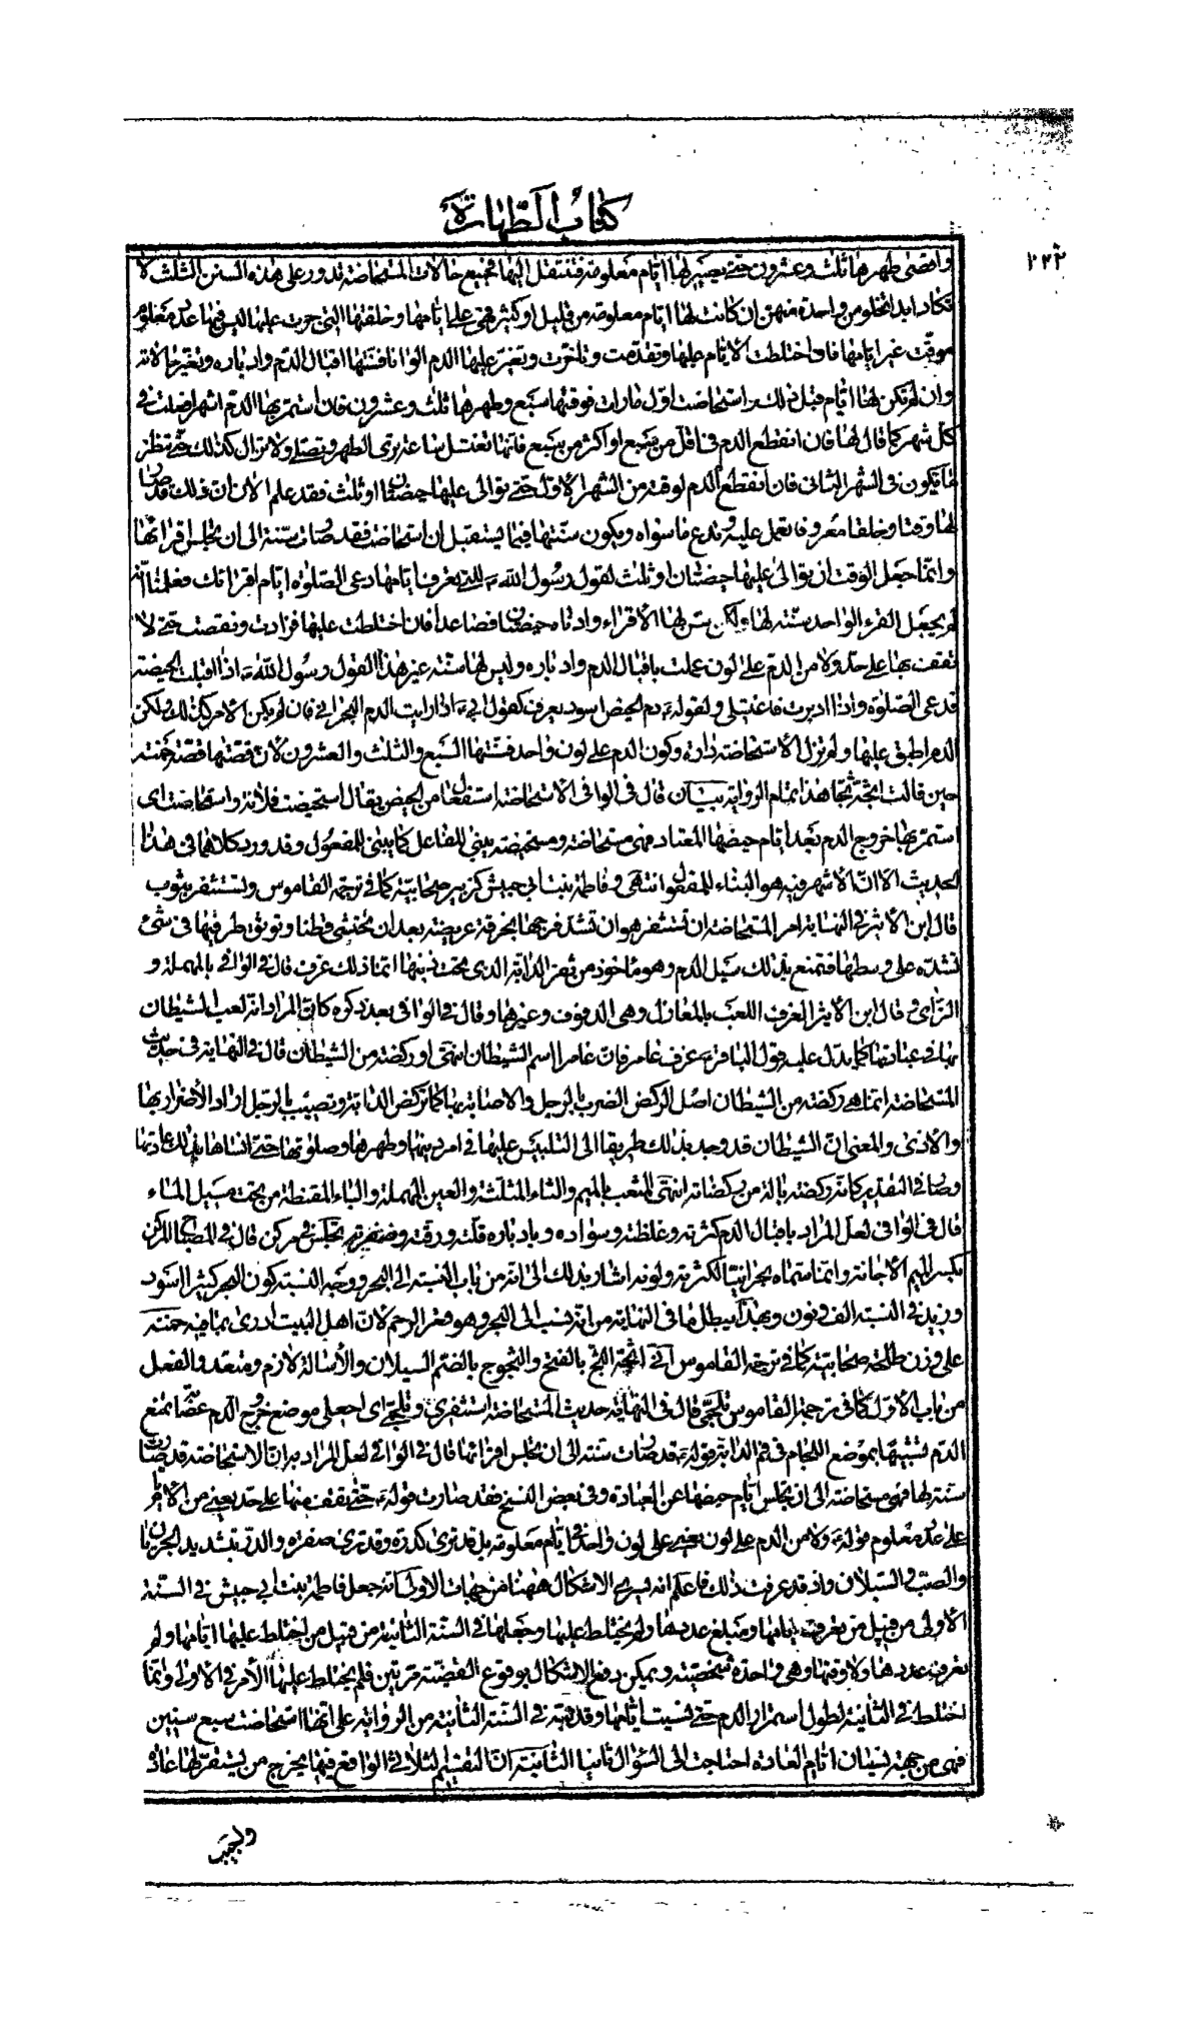 كتاب الطهارة
٢٢٢
واقصى طهرها ثلث وعشرون حتى يصير لها ايام معلومة فتنتقل اليها فجميع حالات المستحاضة تدور على هذه السنن الثلث لا
تكاد ابدا تخلو من واحدة منهن ان كانت لها ايام معلومة من قليل او كثير فهى على ايامها وخلقتها التى جرت عليها ليس فيها عدد معلوم
موقت غير ايامها فان اختلطت الايام عليها وتقدمت وتاخرت وتغير عليها الدم الوانا فسنتها اقبال الدم وادباره وتغير حالاته
وان لم تكن لها ايام قبل ذلك واستحاضت اول ما رات فوقتها سبع وطهرها ثلث وعشرون فان استمر بها الدم اشهرا فعلت فى
كل شهر كما قال لها فان انقطع الدم فى اقل من سبع او اكثر من سبع فانها تغتسل ساعة ترى الطهر وتصلى ولا تزال كذلك حتى تنظر
ما يكون فى الشهر الثانى فان انقطع الدم لوقته من الشهر الاول حتى توالى عليها حيضتان او ثلث فقد علم الان ان ذلك قد صار
لها وقتا وخلقا معروفا تعمل عليه وتدع ما سواه ويكون سنتها فيما يستقبل ان استحاضت فقد صارت سنة الى ان تجلس اقراءها
وانما جعل الوقت ان توالى عليها حيضتان او ثلث لقول رسول الله ص للتى تعرف ايامها دعى الصلوة ايام اقرائك فعلمنا انه
لم يجعل القرء الواحد سنة لها ولكن سن لها الاقراء وادناه حيضتان فصاعدا فان اختلطت عليها فزادت ونقصت حتى لا
تقف بها على حد ولا من الدم على لون عملت باقبال الدم وادباره وليس لها سنة غير هذا لقول رسول الله ص اذا اقبلت الحيضة
فدعى الصلوة واذا ادبرت فاغتسلى ولقوله دم الحيض اسود يعرف كقول ابى اذا رايت الدم البحرانى فان لم يكن الامر كذلك ولكن
الدم اطبق عليها ولم تزل الاستحاضة دارة وكون الدم على لون واحد فسنتها السبع والثلث والعشرون لان قصتها قصة حمنة
حين قالت اثجه ثجا هذا تمام الرواية بيان قال فى الوافى الاستحاضة استفعال من الحيض يقال استحيضت فلانة واستحاضت اى
استمر بها خروج الدم بعد ايام حيضها المعتاد فهى مستحاضة ومستحيضة يبنى للفاعل كما يبنى للمفعول وقد ورد كلاهما فى هذا
الحديث الا ان الاشهر فيه هو البناء للمفعول انتهى وفاطمة بنت ابى حبيش كزبير صحابية كما فى ترجمة القاموس وتستثفر بثوب
قال ابن الاثير فى النهاية امر المستحاضة ان تستثفر هو ان تشد فرجها بخرقة عريضة بعد ان تحتشى قطنا وتوثق طرفيها فى شئ
تشده على وسطها فتمنع بذلك سيل الدم وهو ماخوذ من ثفر الدابة الذى تحت ذنبها انما ذلك عزف قال فى الوافى بالمهملة و
الزاى قال ابن الاثير العزف اللعب بالمعازف وهى الدفوف وغيرها وقال فى الوافى بعد ذكره كان المراد انه لعب الشيطان
بها فى عبادتها كما يدل عليه قول الباقر عزف عامر فان عامرا اسم الشيطان انتهى او ركضة من الشيطان قال فى النهاية فى حديث
المستحاضة انما هى ركضة من الشيطان اصل الركض الضرب بالرجل والاصابة بها كما تركض الدابة وتصيب بالرجل اراد الاضرار بها
والاذى والمعنى ان الشيطان قد وجد بذلك طريقا الى التلبيس عليها فى امر دينها وطهرها وصلوتها حتى انساها ذلك عادتها
وصار فى التقدير كانه ركضة بالة من ركضاته انتهى المثعب بالميم والثاء المثلثة والعين المهملة والباء المنقطة من تحت مسيل الماء
قال فى الوافى لعل المراد باقبال الدم كثرته وغلظته وسواده وبادباره قلته ورقته وصفرته تجلس فى مركن قال فى المصباح المركن
بكسر الميم الاجانة وانما سماه بحرانيا لكثرته ولونه اشار بذلك الى انه من باب النسبة الى البحر ووجه النسبة كون البحر كثيرا اسود
وزيد فى النسبة الف ونون وبهذا يبطل ما فى النهاية من انه نسب الى البحر وهو قعر الرحم لان اهل البيت ادرى بما فيه حمنة
على وزن طلحة صحابية كما فى ترجمة القاموس اثجه الثج بالفتح والثجوج بالضم السيلان والاسالة لازم ومتعد والفعل
من باب الاول كما فى ترجمة القاموس تلجمى قال فى النهاية حديث المستحاضة استثفرى وتلجمى اى اجعلى موضع خروج الدم عصابة تمنع
الدم تشبيها بموضع اللجام فى فم الدابة قوله فقد صارت سنة الى ان تجلس اقرائها قال فى الوافى لعل المراد به ان الاستحاضة قد صارت
سنة لها فهى مستحاضة الى ان تجلس ايام حيضها عن العبادة وفى بعض النسخ فقد صارت قوله حتى تقف منها على حد يعنى من الايام
على عدد معلوم قوله ولا من الدم على لون يعنى على لون واحد فى ايام معلومة بل قد ترى كدرة وقد ترى صفرة والدر بتشديد الجريان
والصب والسيلان واذ قد عرفت ذلك فاعلم انه يسرى الاشكال ههنا من جهات الاولى انه جعل فاطمة بنت ابى حبيش فى السنة
الاولى من قبيل من تعرف ايامها ومبلغ عددها ولم يختلط عليها وجعلها فى السنة الثانية من قبيل من اختلط عليها ايامها ولم
تعرف عددها ولا وقتها وهى واحدة شخصية ويمكن دفع الاشكال بوقوع القضية مرتين فلم يختلط عليها الامر فى الاولى وانما
اختلط فى الثانية لطول استمرار الدم حتى نسيت ايامها وقد نبه فى السنة الثانية من الرواية على انها استحاضت سبع سنين
فهى من جهة نسيان ايام العادة احتاجت الى السؤال ثانيا الثانية ان التقسيم الثلاثى الواقع فيها يخرج من يستقر لها عادة